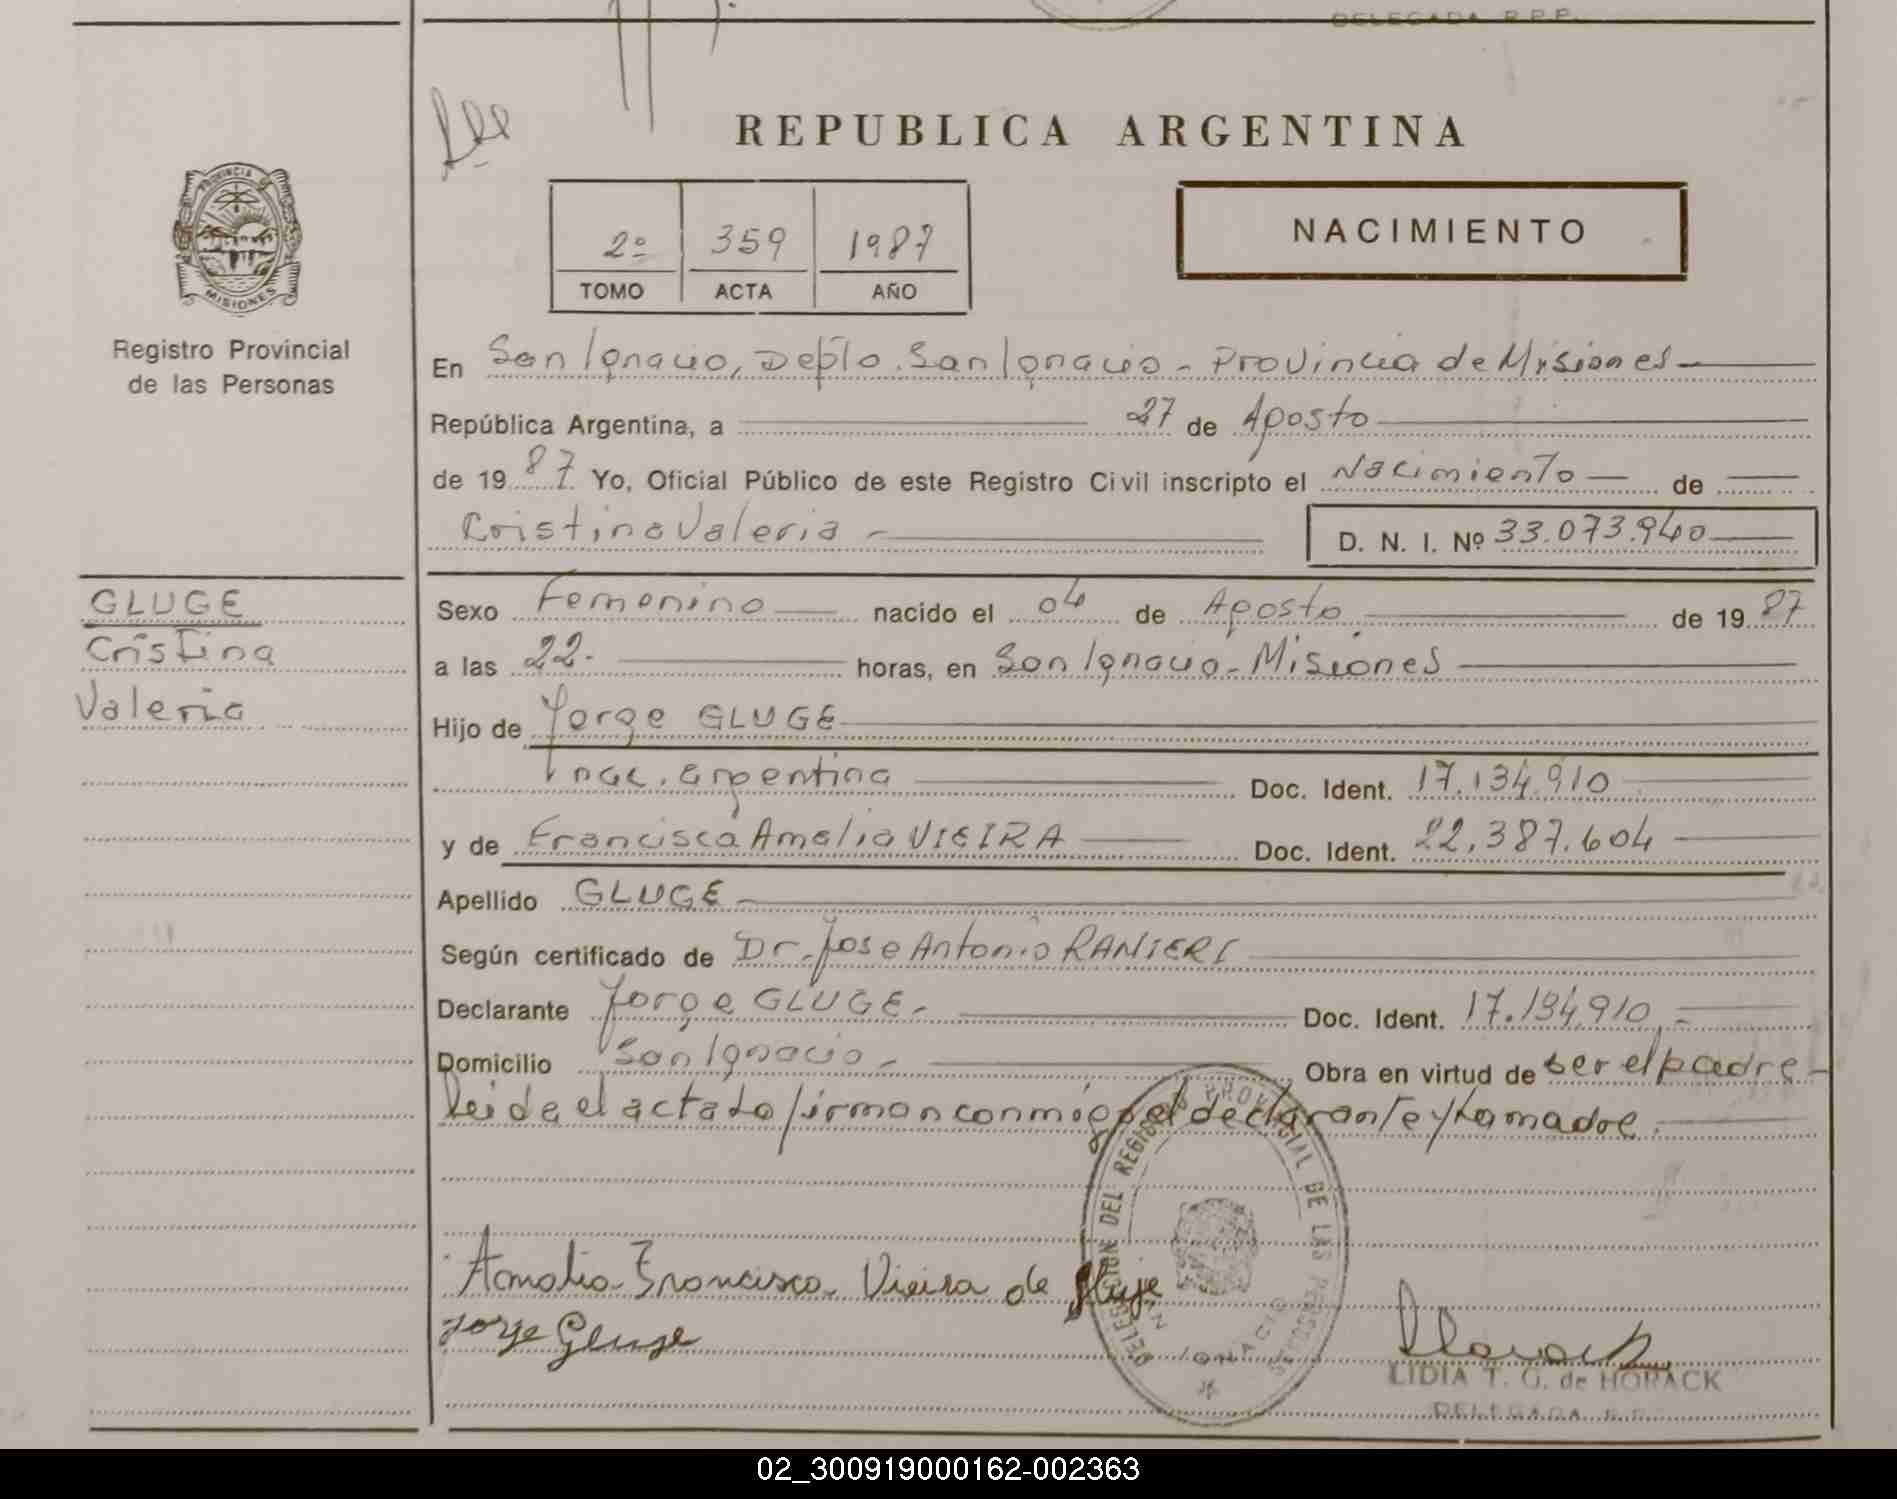 DELEGADA R.P.P.
REPUBLICA ARGENTINA
PROVINCIA
MISIONES
2º 359 1987
TOMO ACTA AÑO
NACIMIENTO
Registro Provincial
de las Personas
En San Ignacio, Depto. San Ignacio - Provincia de Misiones
República Argentina, a 27 de Agosto
de 1987 Yo, Oficial Público de este Registro Civil inscripto el Nacimiento de
Cristina Valeria D. N. I. Nº 33.073.940
GLUGE
Cristina
Valeria
Sexo Femenino nacido el 04 de Agosto de 1987
a las 22. horas, en San Ignacio - Misiones
Hijo de Jorge GLUGE
nac. argentina Doc. Ident. 17.134.910
y de Francisca Amalia VIEIRA Doc. Ident. 22.387.604
Apellido GLUGE
Según certificado de Dr. Jose Antonio RANIERI
Declarante Jorge GLUGE. Doc. Ident. 17.134.910
Domicilio San Ignacio Obra en virtud de ser el padre
Leida el acta la firman conmigo el declarante y la madre.
DELEGACION DEL REGISTRO PROVINCIAL DE LAS PERSONAS
SAN IGNACIO
Amalia Francisca Vieira de Gluje
Jorge Gluge
LIDIA T. G. de HORACK
DELEGADA R.P.
02_300919000162-002363